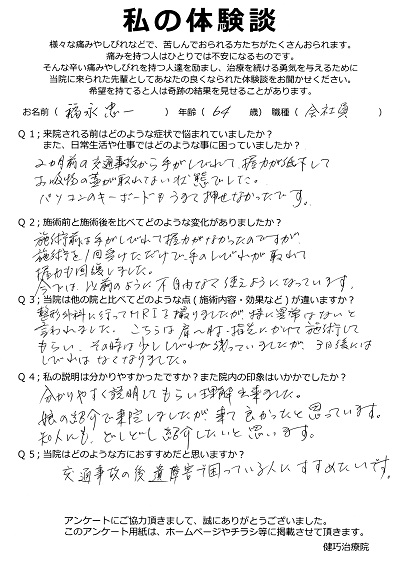 私の体験談
様々な痛みやしびれなどで、苦しんでおられる方たちがたくさんおられます。
痛みを持つ人はひとりでは不安になるものです。
そんな辛い痛みやしびれを持つ人達を励まし、治療を続ける勇気を与えるために
当院に来られた先輩としてあなたの良くなられた体験談をお聞かせください。
希望を持てると人は奇跡の結果を見せることがあります。
お名前（ 福永 忠一 ） 年齢（ 64 歳）職種（ 会社員 ）
Q１；来院される前はどのような症状で悩まれていましたか？
また、日常生活や仕事ではどのような事に困っていましたか？
2カ月前の交通事故から手がしびれて握力が低下して
お吸物の蓋が取れない状態でした。
パソコンのキーボードもうまく押せなかったです。
Q２；施術前と施術後を比べてどのような変化がありましたか？
施術前は手がしびれて握力がなかったのですが、
施術を1回受けただけで、手のしびれが取れて
握力も回復しました。
今では、以前のように不自由なく使えるようになっています。
Q３；当院は他の院と比べてどのような点（施術内容・効果など）が違いますか？
整形外科に行ってMRIを撮りましたが、特に異常はないと
言われました。こちらは肩〜肘・指先にかけて施術して
もらい、その時は少ししびれが残っていましたが、3日後には
しびれはなくなりました。
Q４；私の説明は分かりやすかったですか？また院内の印象はいかかでしたか？
分かりやすく説明してもらい理解出来ました。
娘の紹介で来院しましたが、来て良かったと思っています。
知人にも、どしどし紹介したいと思います。
Q５；当院はどのような方におすすめだと思いますか？
交通事故の後遺障害で困っている人にすすめたいです。
アンケートにご協力頂きまして、誠にありがとうございました。
このアンケート用紙は、ホームページやチラシ等に掲載させて頂きます。
健巧治療院